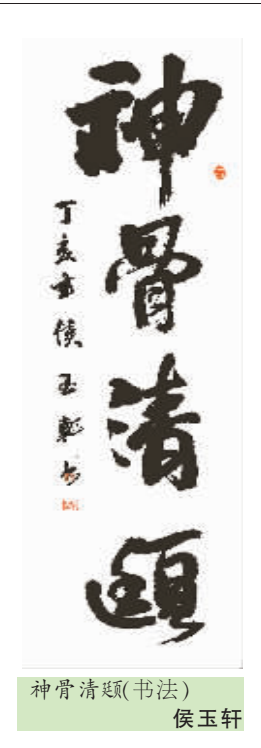 神骨清頲
丁亥 侯玉軒书
神骨清颋(书法)
侯玉轩